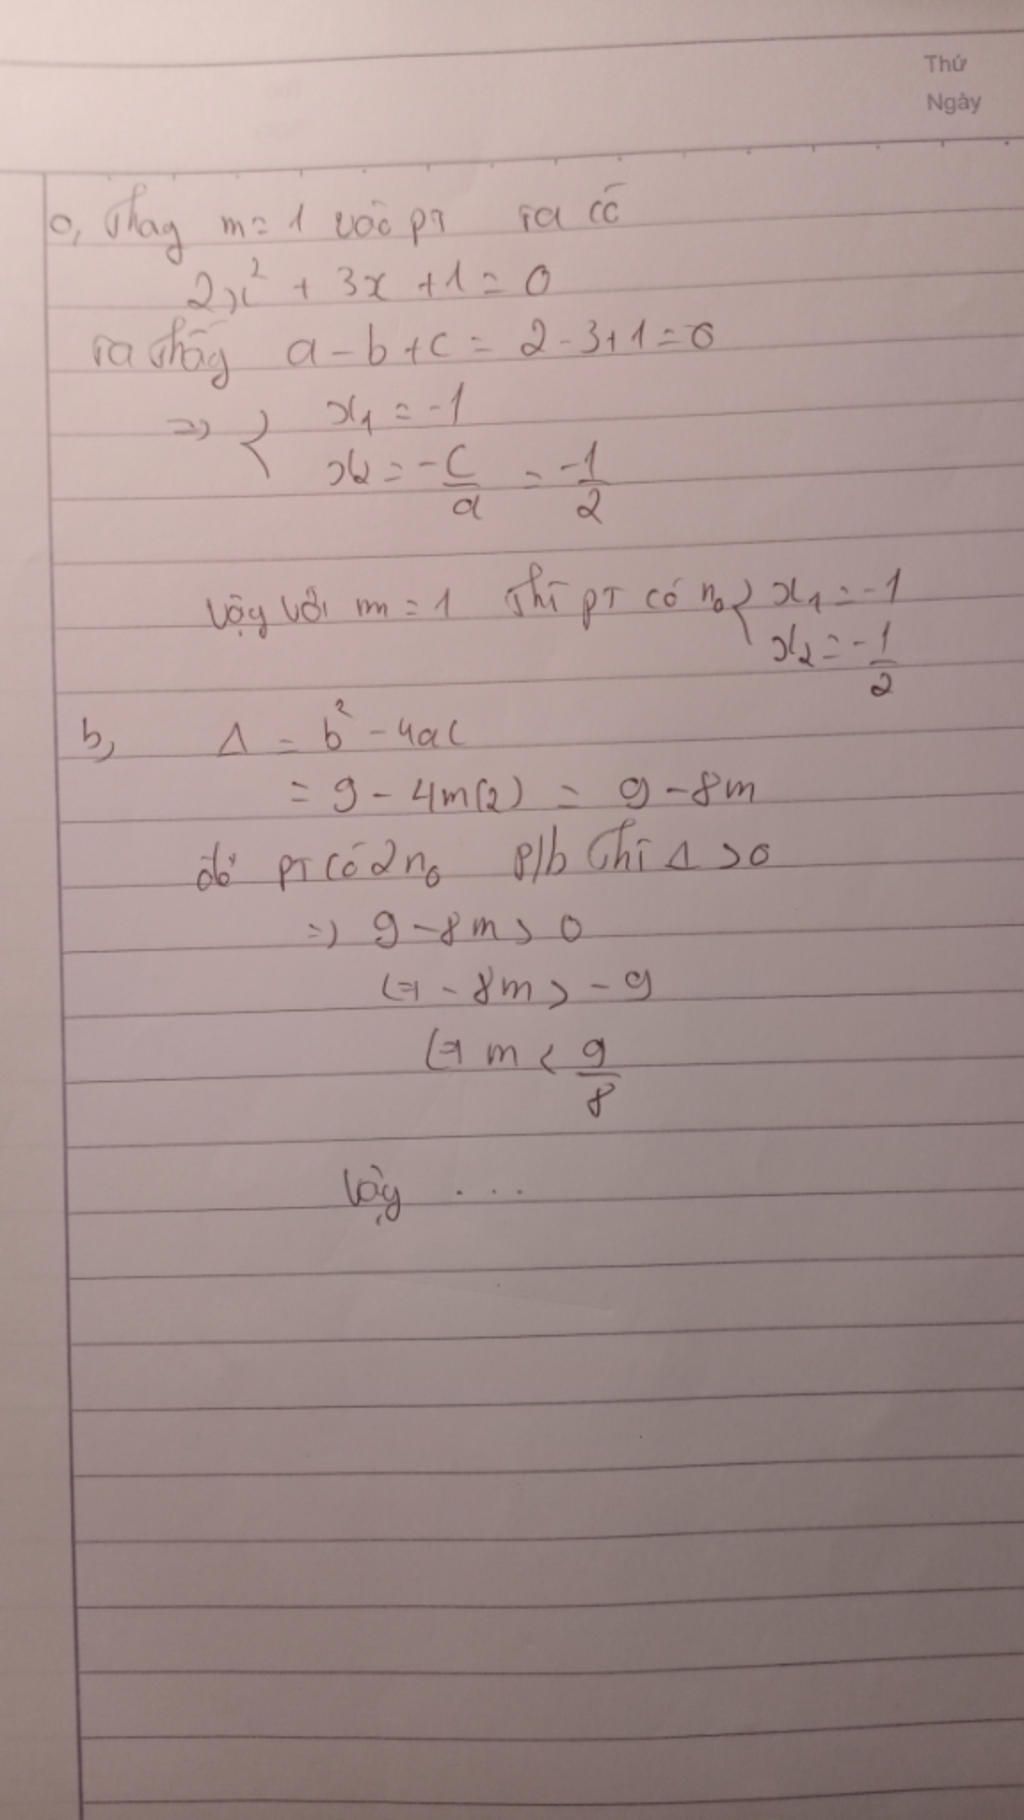 Thứ
Ngày
a, Thay m = 1 vào PT ta có
2x² + 3x + 1 = 0
Ta thấy a - b + c = 2 - 3 + 1 = 0
=> { x₁ = -1
x₂ = -c/a = -1/2
Vậy với m = 1 thì PT có n₀ { x₁ = -1
x₂ = -1/2
b, Δ = b² - 4ac
= 9 - 4m(2) = 9 - 8m
để PT có 2 n₀ p/b thì Δ > 0
=> 9 - 8m > 0
<=> - 8m > - 9
<=> m < 9/8
Vậy ...